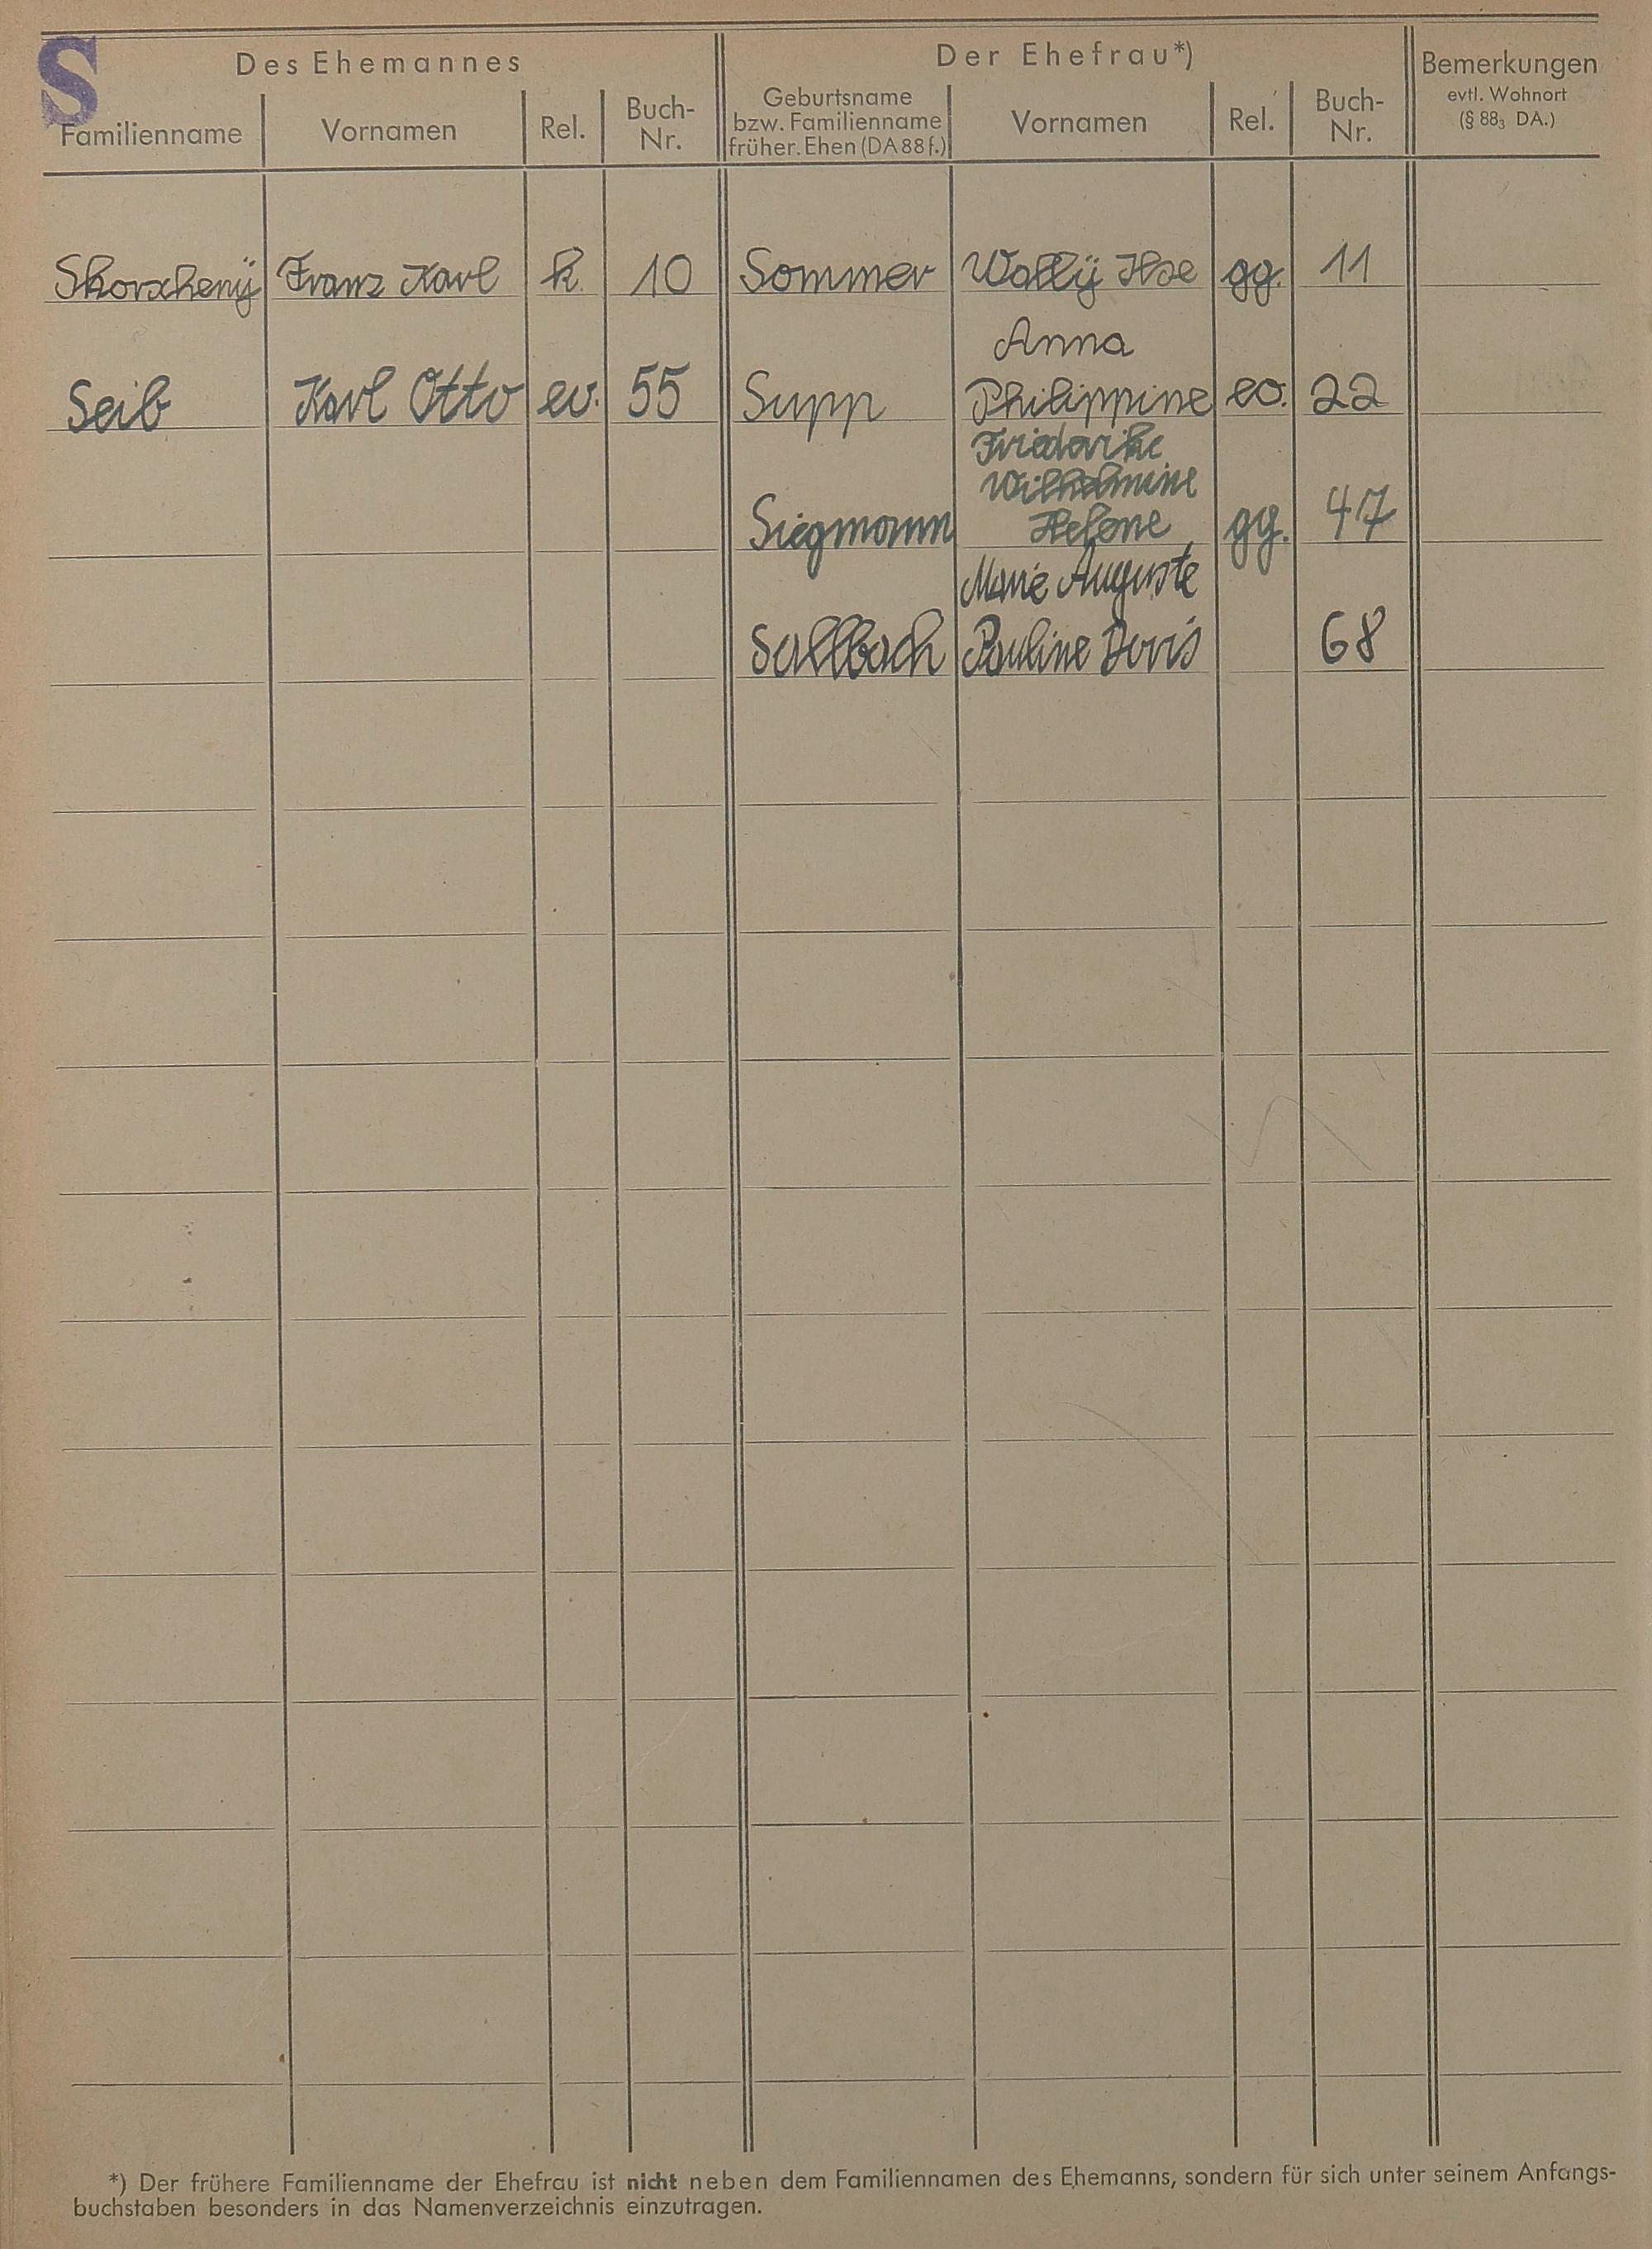 S
Des Ehemannes
Der Ehefrau*)
Bemerkungen
evtl. Wohnort
(§ 88₃ DA.)
Familienname
Vornamen
Rel.
Buch-
Nr.
Geburtsname
bzw. Familienname
früher. Ehen (DA 88 f.)
Vornamen
Rel.
Buch-
Nr.
Franz Karl k. 10 Sommer Wally Ilse gg. 11
Anna
Seib Karl Otto ev. 55 Supp Philippine ev. 22
Friederike
Wilhelmine
Siegmann Helene gg. 47
Marie Auguste
Sallbach Pauline Doris 68
*) Der frühere Familienname der Ehefrau ist nicht neben dem Familiennamen des Ehemanns, sondern für sich unter seinem Anfangs-
buchstaben besonders in das Namenverzeichnis einzutragen.